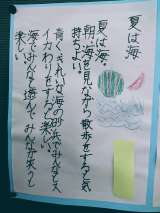 夏は海
夏は海。
朝、海を見ながら散歩をすると気
持ちよい。
青くきれいな海の砂浜でみんなとス
イカわりをすると楽しい。
海でみんなと遊んで みんなが笑うと
楽しい。